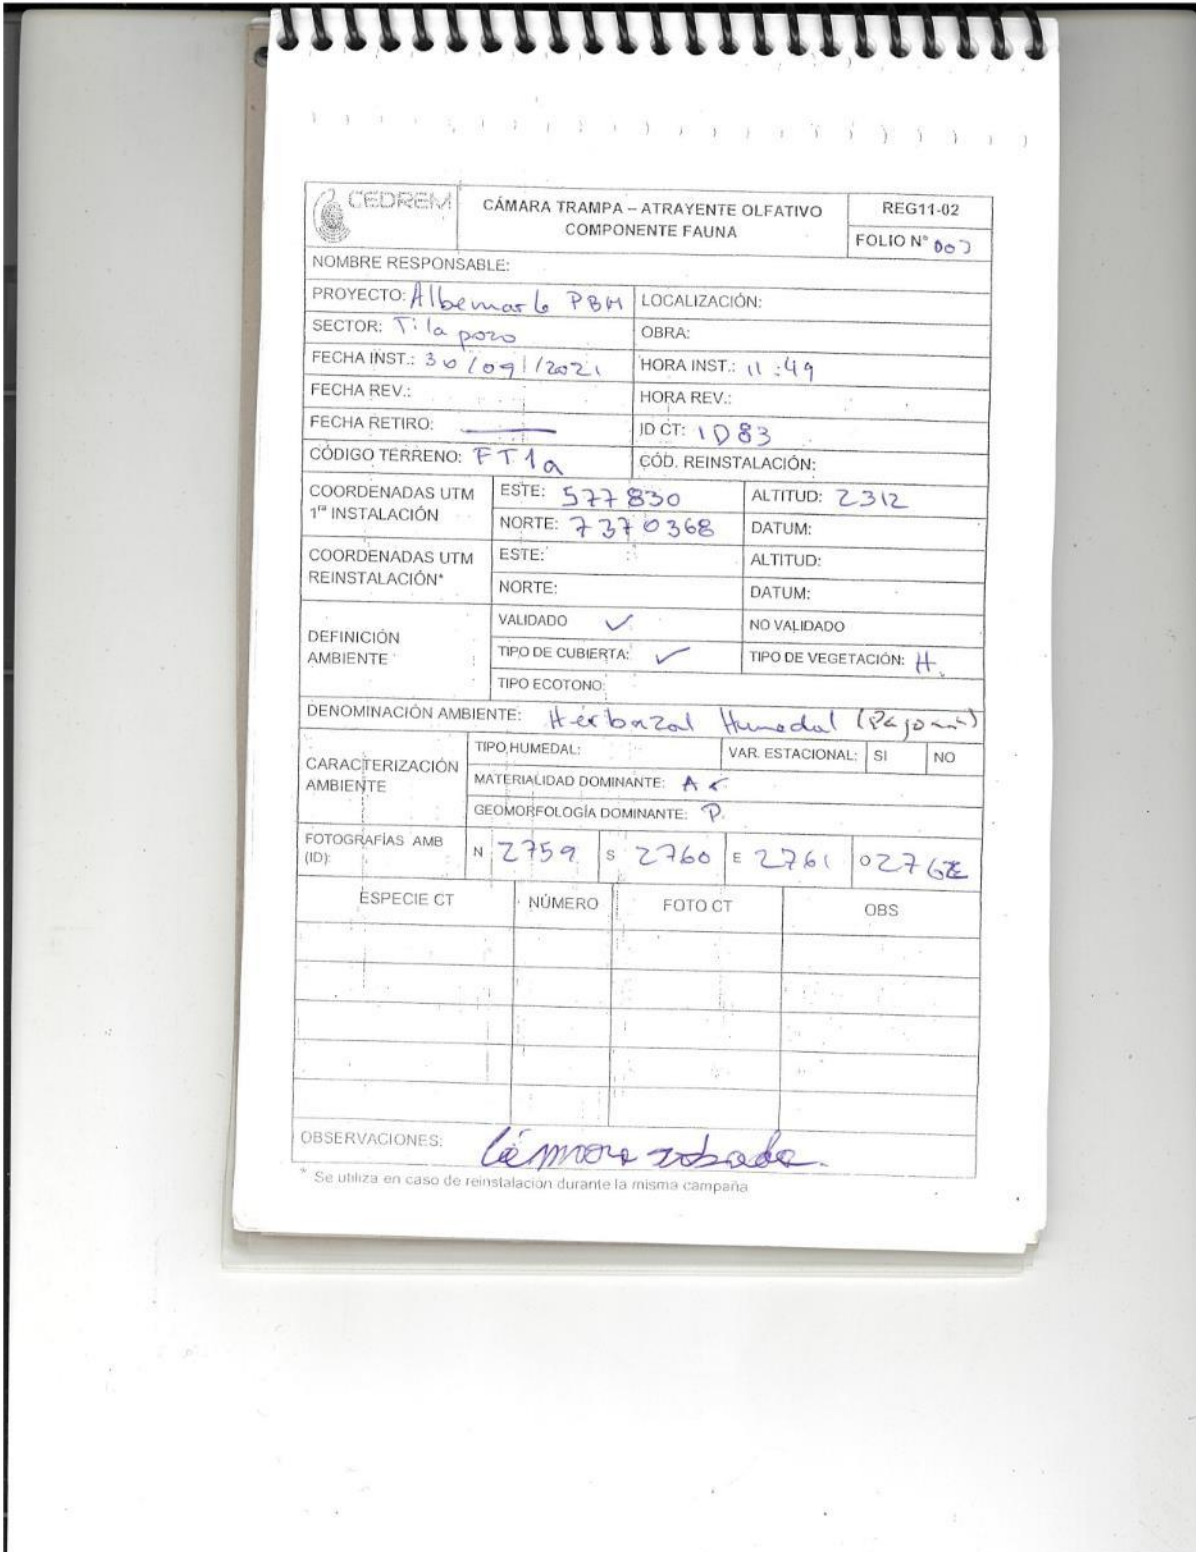 CEDREM
CÁMARA TRAMPA – ATRAYENTE OLFATIVO
COMPONENTE FAUNA
REG11-02
FOLIO N° 003
NOMBRE RESPONSABLE:
PROYECTO: Albemarle PBM LOCALIZACIÓN:
SECTOR: Tilapozo OBRA:
FECHA INST.: 30/09/2021 HORA INST.: 11:49
FECHA REV.: HORA REV.:
FECHA RETIRO: ID CT: ID83
CÓDIGO TERRENO: FT1a CÓD. REINSTALACIÓN:
COORDENADAS UTM
1ra INSTALACIÓN
ESTE: 577830 ALTITUD: 2312
NORTE: 7370368 DATUM:
COORDENADAS UTM
REINSTALACIÓN*
ESTE: ALTITUD:
NORTE: DATUM:
DEFINICIÓN
AMBIENTE
VALIDADO ✓ NO VALIDADO
TIPO DE CUBIERTA: ✓ TIPO DE VEGETACIÓN: H.
TIPO ECOTONO:
DENOMINACIÓN AMBIENTE: Herbazal Humedal
CARACTERIZACIÓN
AMBIENTE
TIPO HUMEDAL: VAR. ESTACIONAL: SI NO
MATERIALIDAD DOMINANTE:
GEOMORFOLOGÍA DOMINANTE: P.
FOTOGRAFÍAS AMB
(ID):
N 2759 S 2760 E 2761 O 2762
ESPECIE CT NÚMERO FOTO CT OBS
OBSERVACIONES: Cámara robada.
* Se utiliza en caso de reinstalación durante la misma campaña